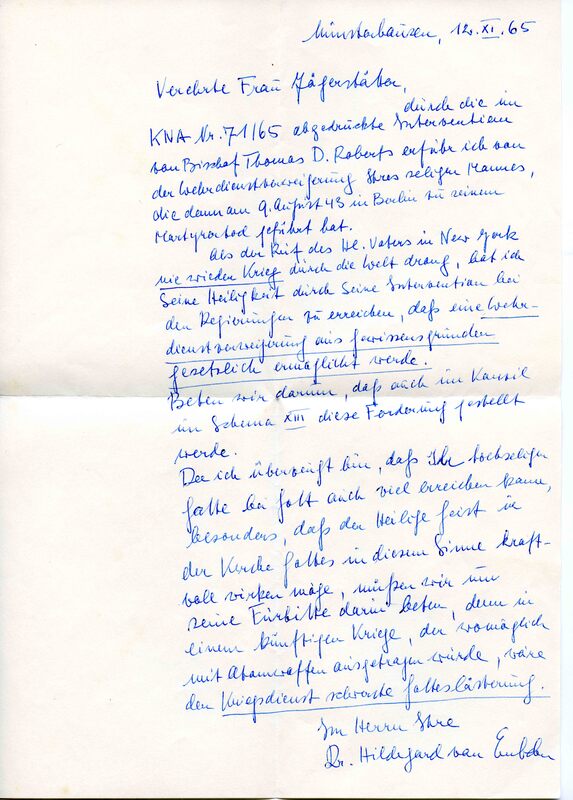 Münsterhausen, 12. XI. 65
Verehrte Frau Jägerstätter,
durch die im
KNA Nr. 71/65 abgedruckte Intervention
von Bischof Thomas D. Roberts erfuhr ich von
der Wehrdienstverweigerung Ihres seligen Mannes,
die dann am 9. August 43 in Berlin zu seinem
Martyrertod geführt hat.
Als der Ruf des Hl. Vaters in New York
nie wieden Krieg durch die Welt drang, bat ich
Seine Heiligkeit durch Seine Intervention bei
den Regierungen zu erreichen, daß eine Wehr-
dienstverweigerung aus Gewissensgründen
gesetzlich ermöglicht werde.
Beten wir darum, daß auch im Konzil
im Schema XIII diese Forderung gestellt
werde.
Da ich überzeugt bin, daß Ihr hochseliger
Gatte bei Gott auch viel erreichen kann,
besonders, daß der Heilige Geist in
der Kirche Gottes in diesem Sinne kraft-
voll wirken möge, müßen wir um
seine Fürbitte darin beten, denn in
einem künftigen Kriege, der womöglich
mit Atomwaffen ausgetragen würde, wäre
den Kriegsdienst schwerste Gotteslästerung.
Im Herrn Ihre
Dr. Hildegard van